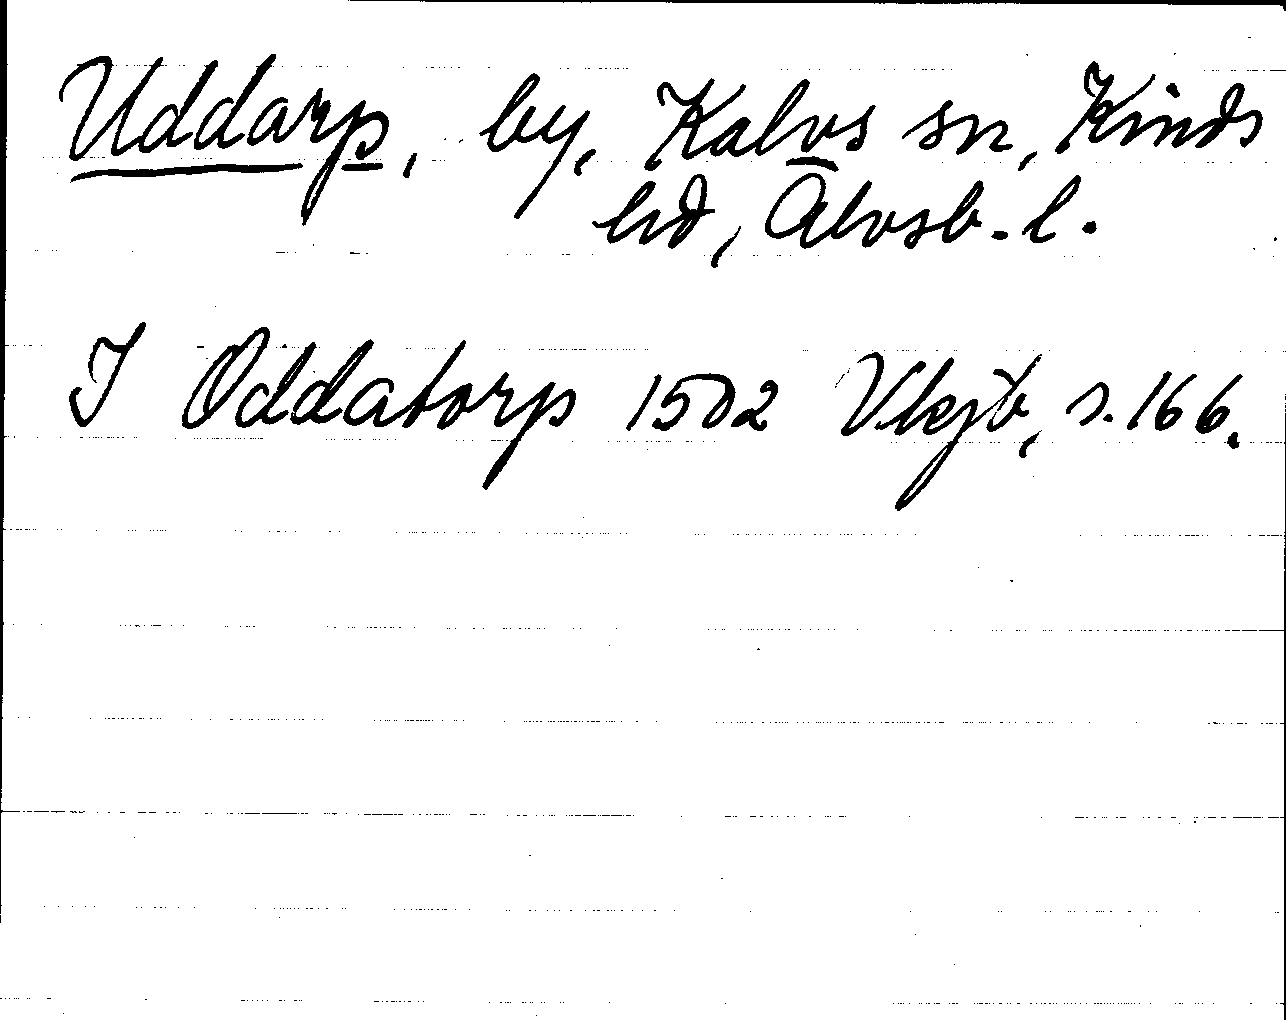 Uddarp, by, Kalvs sn, Kinds
hd, Älvsb. l.
I Oddatorp 1502 Vlejb, s. 166.